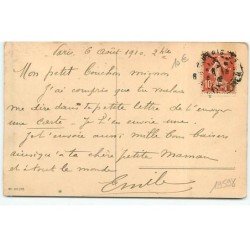 Paris 6 Août 1910
Mon petit Couchou mignon
J'ai compris que tu
me dire dans ta petite lettre de t'envoyer
une carte — Je t'en envoie une.
Je t'envoie aussi mille bons baisers
ainsi qu'à ta chère petite Maman
et à tout le monde
Emile